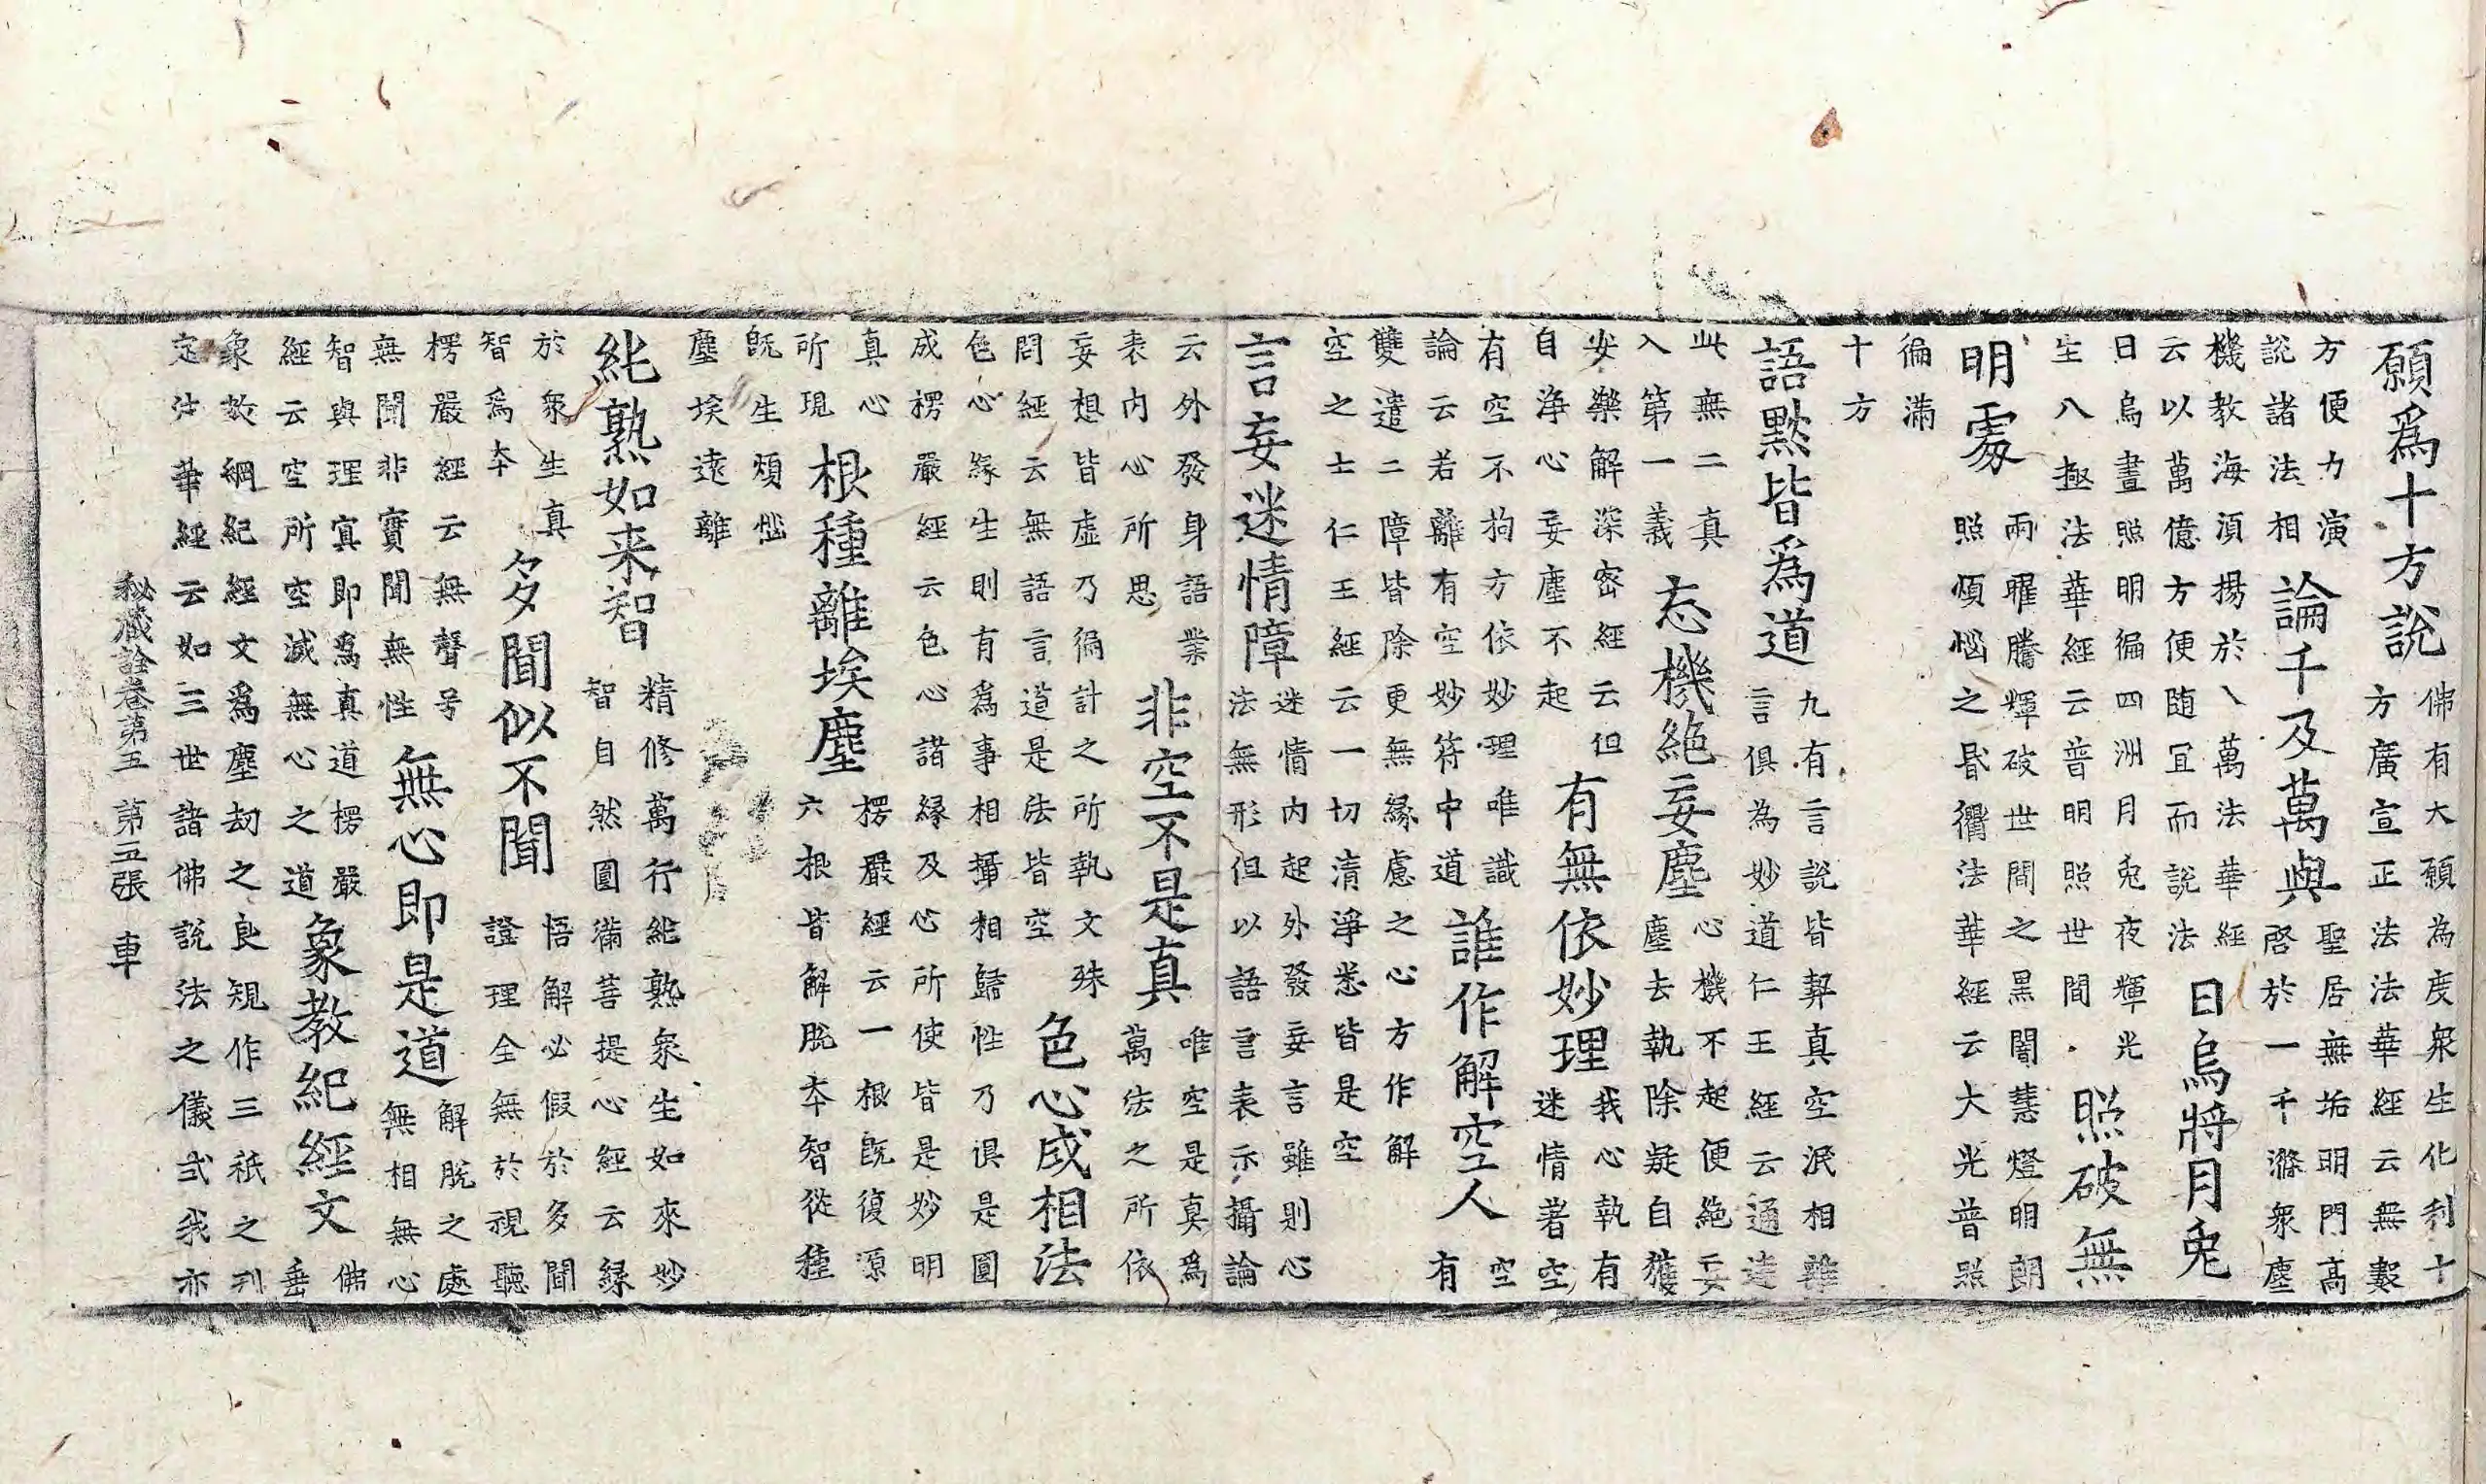 願爲十方說
佛有大願為度衆生化利十
方廣宣正法法華經云無數
方便力演
說諸法相
論千及萬與
聖居無垢明門高
啓於一千滌衆塵
機教海湏揚於八萬法華經
云以萬億方便随宜而說法
日烏將月兎
日烏晝照明徧四洲月兎夜輝光
生八極法華經云普明照世間
照破無
明處
兩曜騰輝破世間之黒闇慧燈明朗
照煩惱之昬衢法華經云大光普照
徧滿
十方
語默皆爲道
九有言說皆契真空泯相離
言俱為妙道仁王經云通達
此無二真
入第一義
忘機絶妄塵
心機不起便絶妄
塵去執除疑自獲
安樂解深密經云但
自淨心妄塵不起
有無依妙理
我心執有
迷情著空
有空不拘方依妙理唯識
論云若離有空妙符中道
誰作解空人
空
有
雙遣二障皆除更無緣慮之心方作解
空之士仁王經云一切清淨悉皆是空
言妄迷情障
迷情内起外發妄言雖則心
法無形但以語言表示攝論
云外發身語業
表内心所思
非空不是真
唯空是真爲
萬法之所依
妄想皆虛乃徧計之所執文殊
問經云無語言道是法皆空
色心成相法
色心緣生則有爲事相攝相歸性乃俱是圓
成楞嚴經云色心諸緣及心所使皆是妙明
真心
所現
根種離埃塵
楞嚴經云一根旣復源
六根皆解脫本智從種
旣生煩惱
塵埃遠離
純熟如来智
精修萬行純熟衆生如來妙
智自然圓滿菩提心經云緣
於衆生真
智爲本
多聞似不聞
悟解必假於多聞
證理全無於視聽
楞嚴經云無聲号
無聞非實聞無性
無心即是道
解脫之處
無相無心
智與理冥即爲真道楞嚴
經云空所空滅無心之道
象教紀經文
佛
垂
象教綱紀經文爲塵劫之良規作三祇之刋
定法華經云如三世諸佛說法之儀式我亦
秘藏詮卷第五 第五張 車